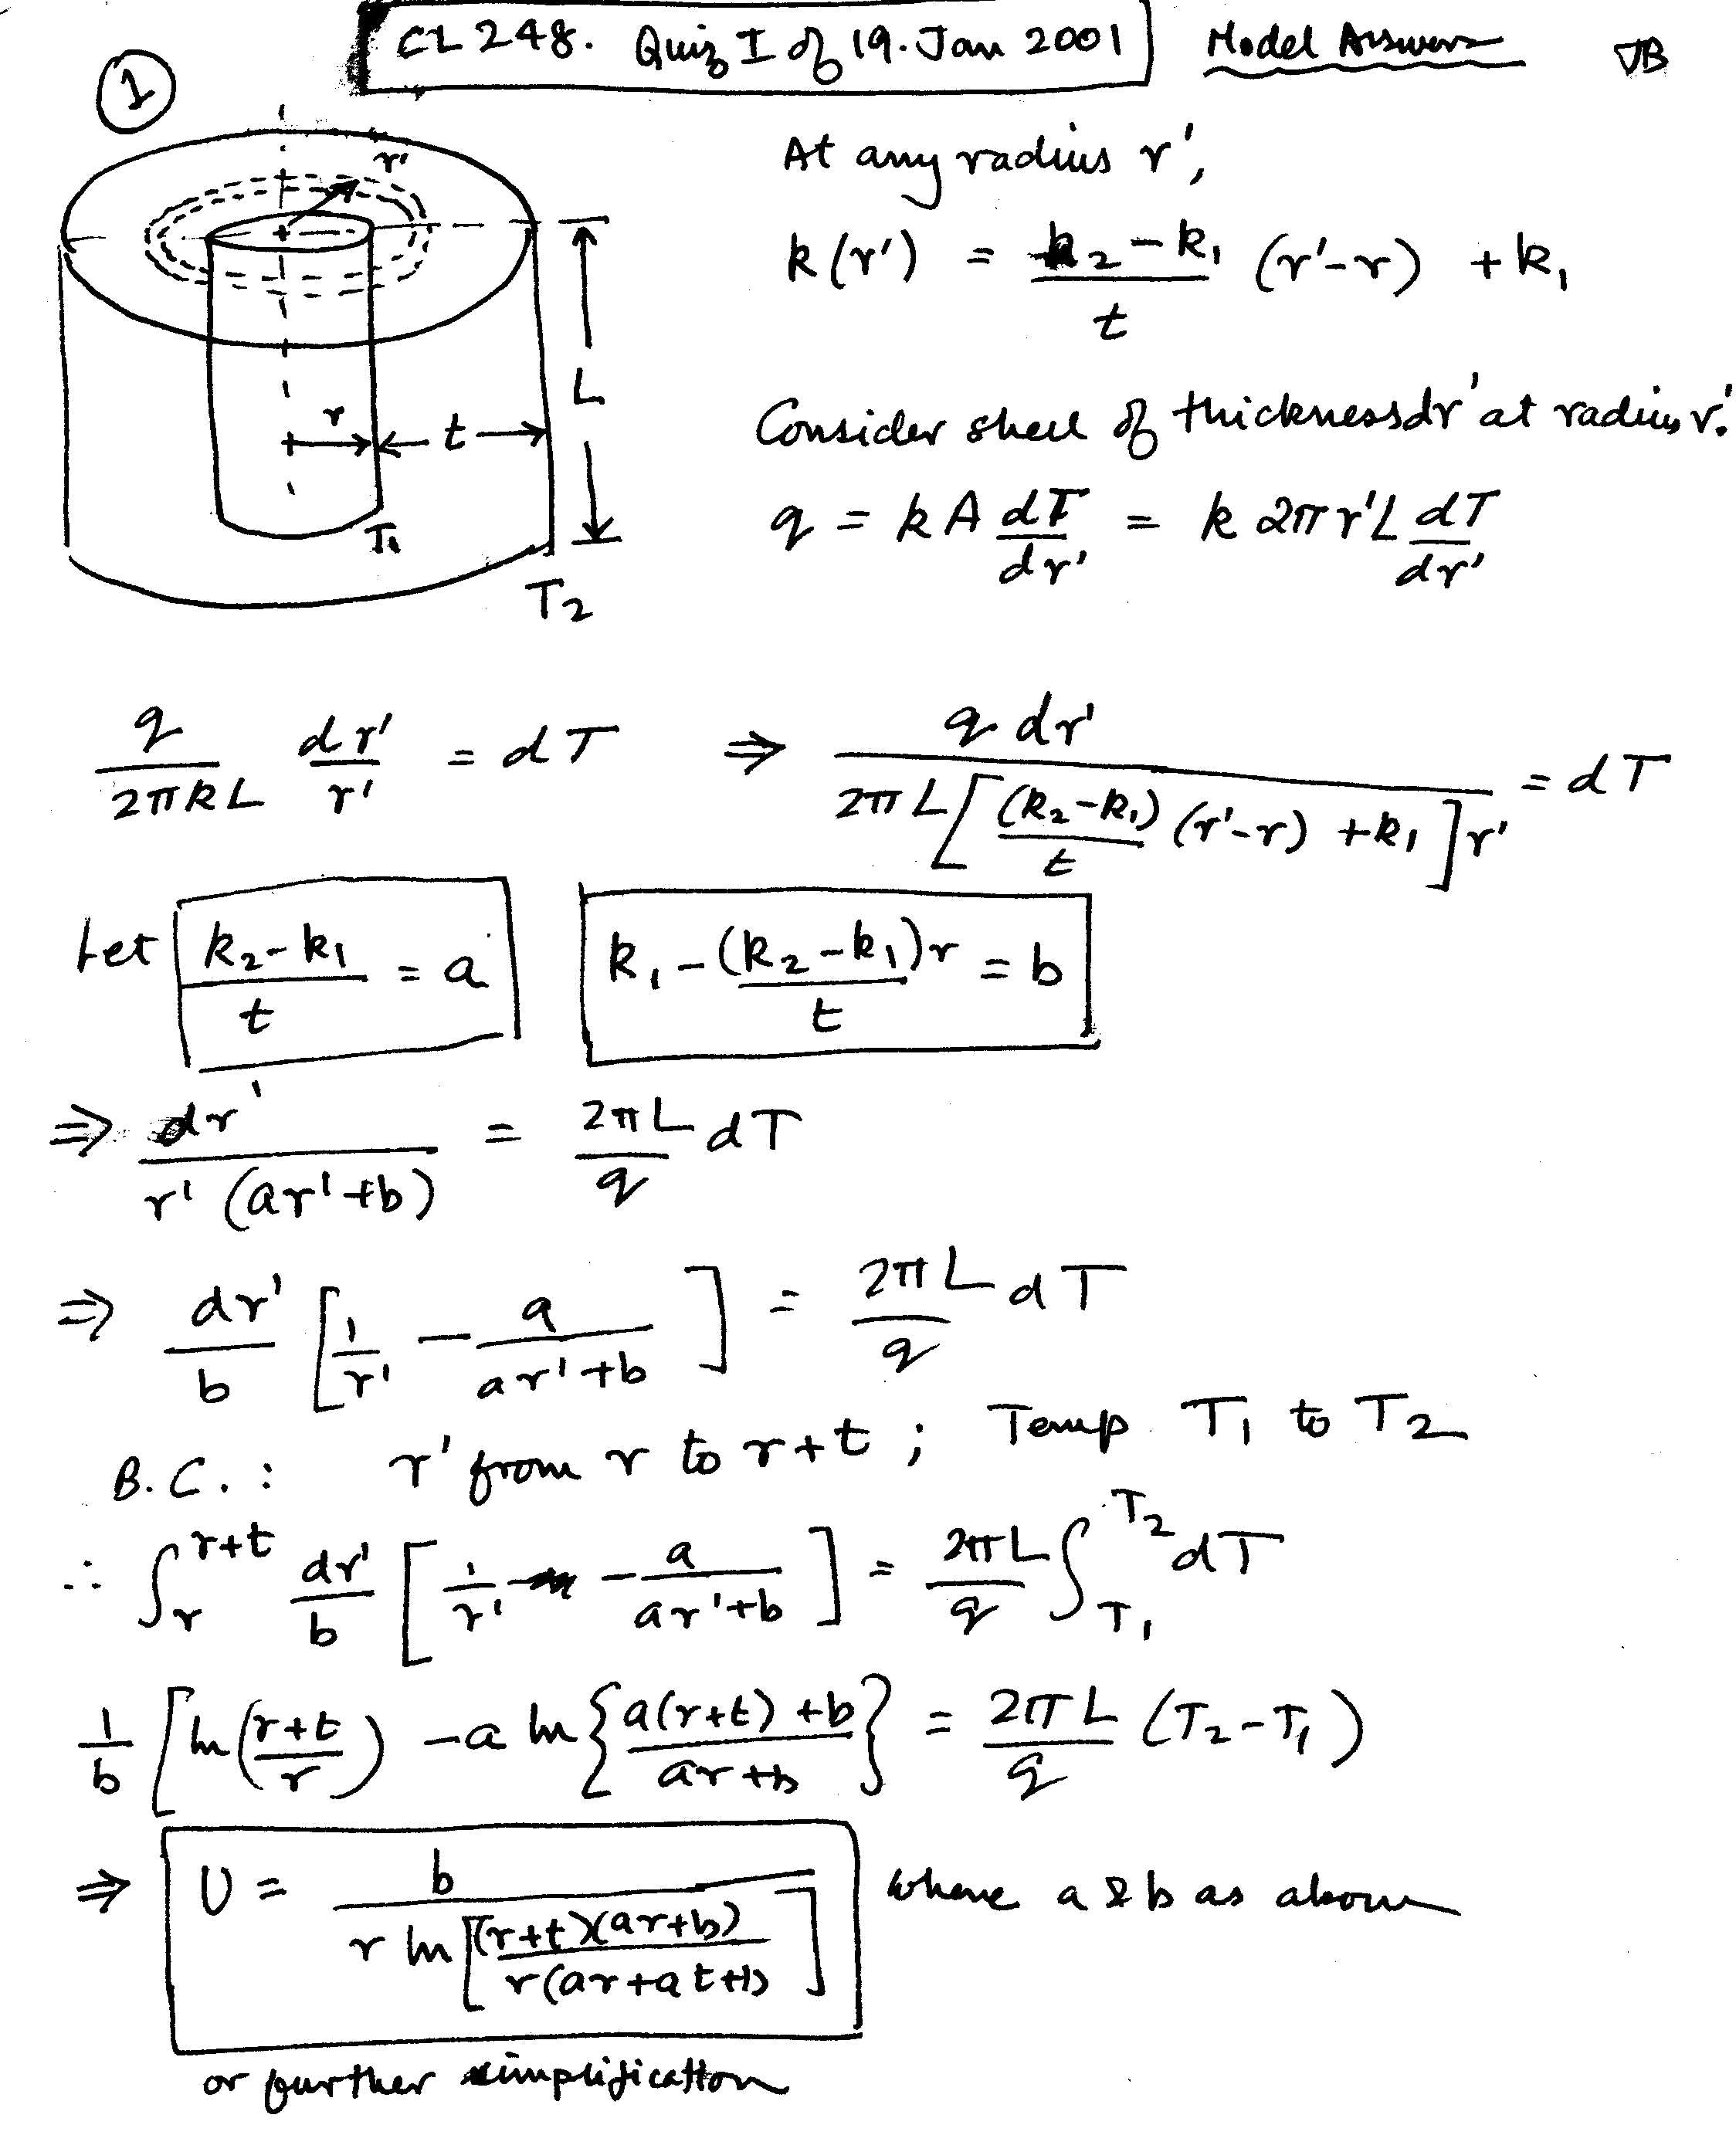 CL 248. Quiz I of 19. Jan 2001 Model Answers JB
1
r'
L
r t
T₁
T₂
At any radius r',
k(r') = (k₂ - k₁)/t (r'-r) + k₁
Consider shell of thickness dr' at radius r'.
q = k A dT/dr' = k 2π r'L dT/dr'
q/(2πkL) dr'/r' = dT ⇒ q dr' / (2πL[(k₂-k₁)/t (r'-r) + k₁]r') = dT
Let (k₂-k₁)/t = a k₁ - (k₂-k₁)r/t = b
⇒ dr' / (r' (ar'+b)) = 2πL/q dT
⇒ dr'/b [1/r' - a/(ar'+b)] = 2πL/q dT
B.C. : r' from r to r+t ; Temp T₁ to T₂
∴ ∫_r^(r+t) dr'/b [1/r' - a/(ar'+b)] = 2πL/q ∫_T₁^T₂ dT
1/b [ln((r+t)/r) - a ln{(a(r+t)+b)/(ar+b)} = 2πL/q (T₂-T₁)
⇒ U = b / (r ln[(r+t)(ar+b) / r(ar+at+b]) where a & b as above
or further simplification